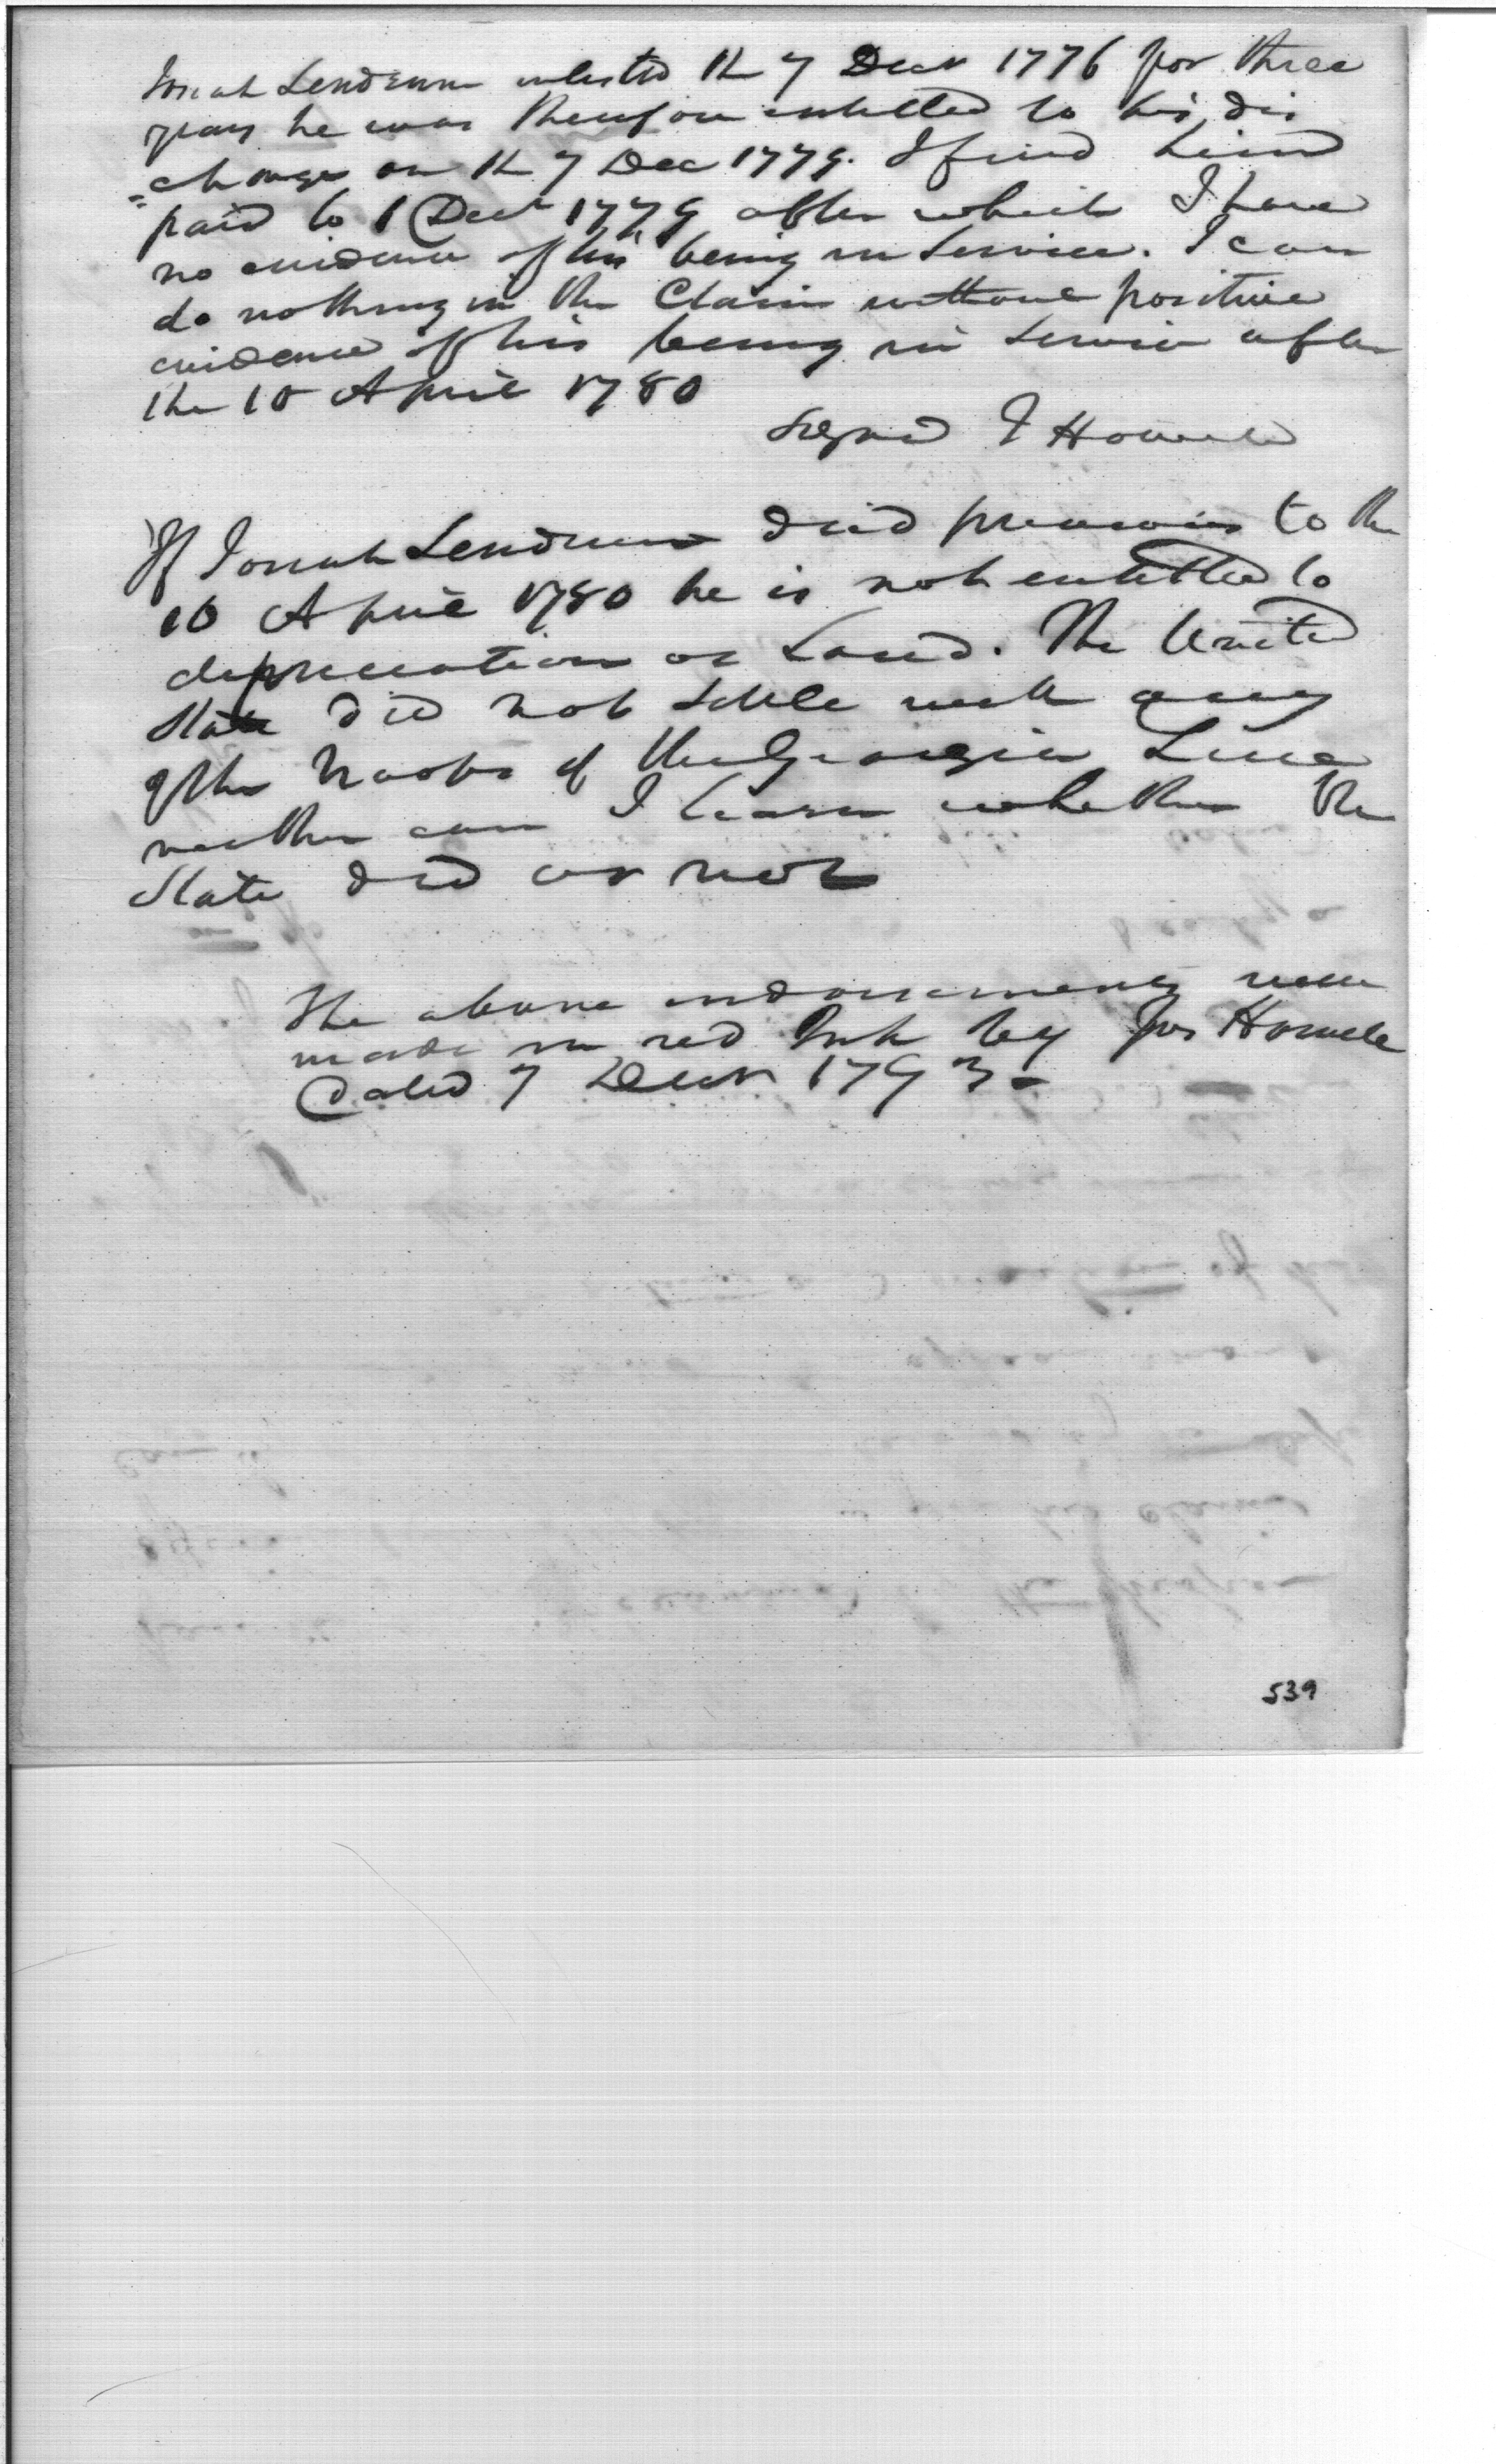 Josiah Lendrum inlisted the 7 Decr 1776 for three
years he was therefore intitled to his dis
=charge on the 7 Dec 1779. I find him
paid to 1 Decr 1779 after which I have
no evidence of his being in Service. I can
do nothing in the Claim without positive
evidence of his being in service after
the 10 April 1780
Signed J Howell
If Josiah Lendrum died previous to the
10 April 1780 he is not entitled to
depreciation or Land. The United
State did not settle with any
of the troops of the Georgia Line
neither can I learn whether the
State did or not
The above endorsements were
made in red Ink by Jos Howell
Dated 7 Decr 1793.
539